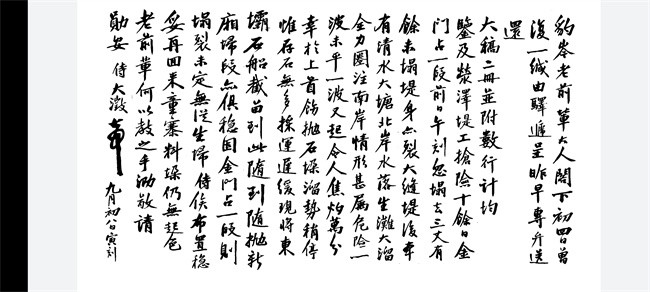 豹岑老前輩大人閣下初四日曾
復一緘由驛遞呈昨早專弁送
還
大稿二冊並附數行計均
鑒及滎澤堤工搶險十餘日金
門占一段前日午刻忽塌去三丈有
餘未塌堤身亦裂大縫堤後幸
有清水大塘北岸水落生灘大溜
全力圈注南岸情形甚屬危險一
波未平一波又起令人焦灼萬分
幸於上首飭拋石垛溜勢稍停
惟存石無多採運遲緩現將東
壩石船截留到此隨到隨拋新
廂埽段亦俱穩固金門占一段則
塌裂未定無從生埽侍俟布置穩
妥再回來童寨料垛仍無起色
老前輩何以教之手泐敬請
勛安 侍大澂頓
九月初八日寅刻